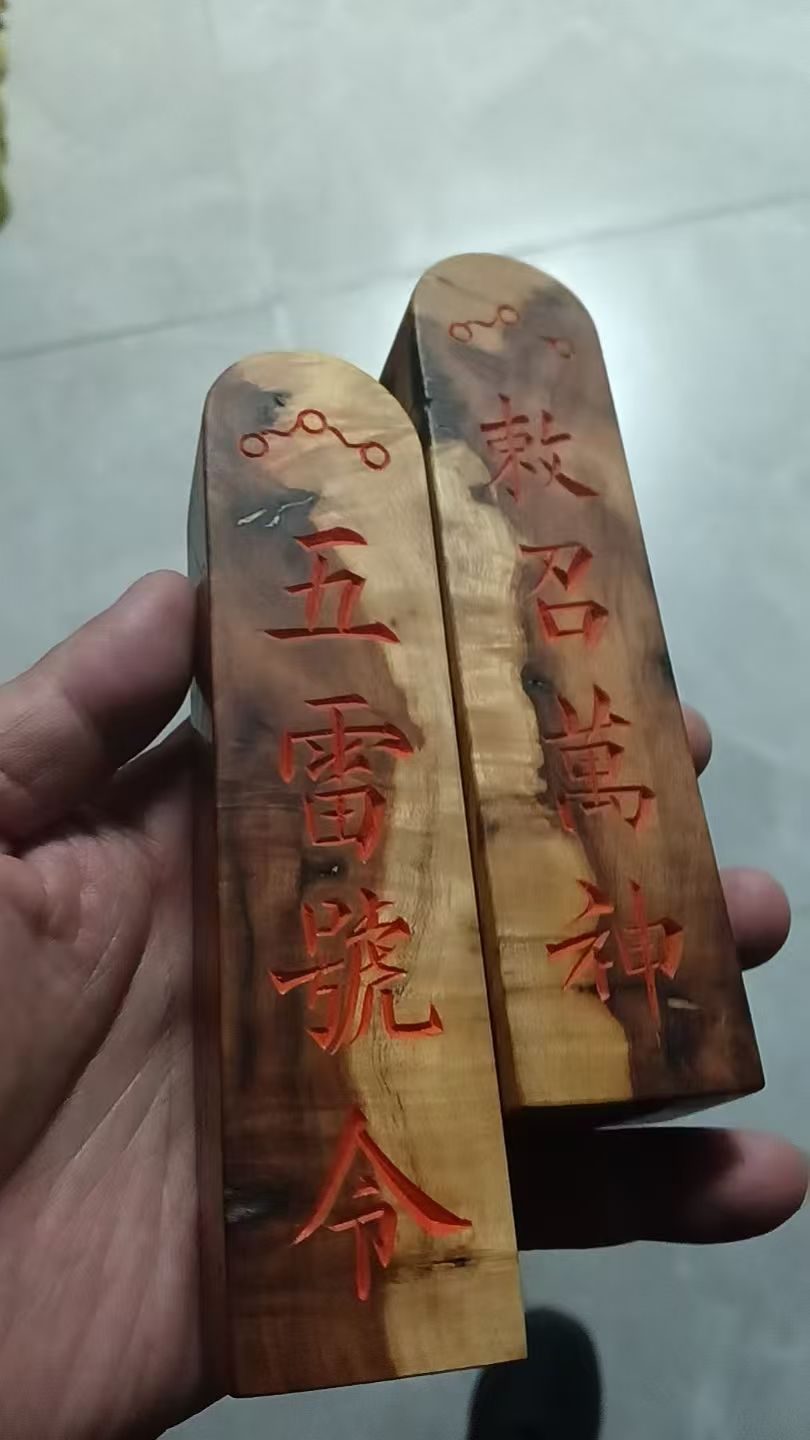 五雷號令
敕召萬神